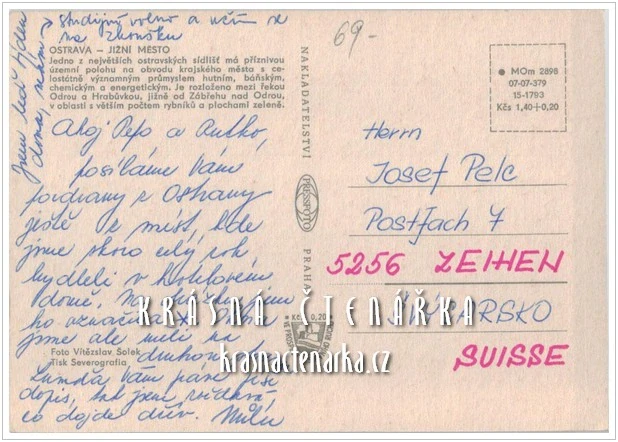 studijný volno a učím se
na zkoušku
Jsem teď týden
doma, mám
69-
OSTRAVA – JIŽNÍ MĚSTO
Jedno z největších ostravských sídlišť má příznivou
územní polohu na obvodu krajského města s ce-
lostátně významným průmyslem hutním, báňským,
chemickým a energetickým. Je rozloženo mezi řekou
Odrou a Hrabůvkou, jižně od Zábřehu nad Odrou,
v oblasti s větším počtem rybníků a plochami zeleně.
Ahoj Pepo a Rutko,
posíláme Vám
pozdravy z Ostravy
ještě z míst, kde
jsme skoro celý rok
bydleli v hotelovém
domě. Na
ho označit
jsme ale měli na
druhou
Lunďa Vám píše
dopis, tak jsem zvědavá,
co dojde dřív. Milu
Foto Vítězslav Solek
Tisk Severografia
NAKLADATELSTVÍ
PRESSFOTO
PRAHA
Kčs 0,20
• MOm 2898
07-07-379
15-1793
Kčs 1,40+0,20
Herrn
Josef Pelc
Postfach 7
5256 ZEIHEN
SUISSE
KRÁSNÁ ČTENÁŘKA
krasnactenarka.cz